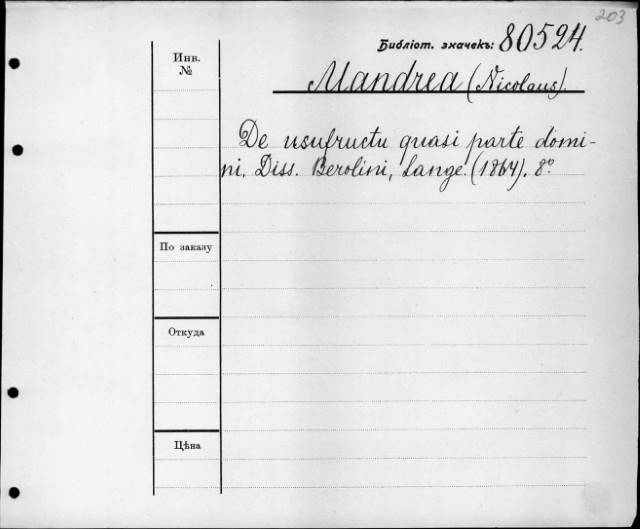 203
Библіот. значекъ: 80524.
Инв.
№
Mandrea (Nicolaus).
De usufructu quasi parte domi-
ni. Diss. Berolini, Lange. (1864). 8º.
По заказу
Откуда
Цѣна